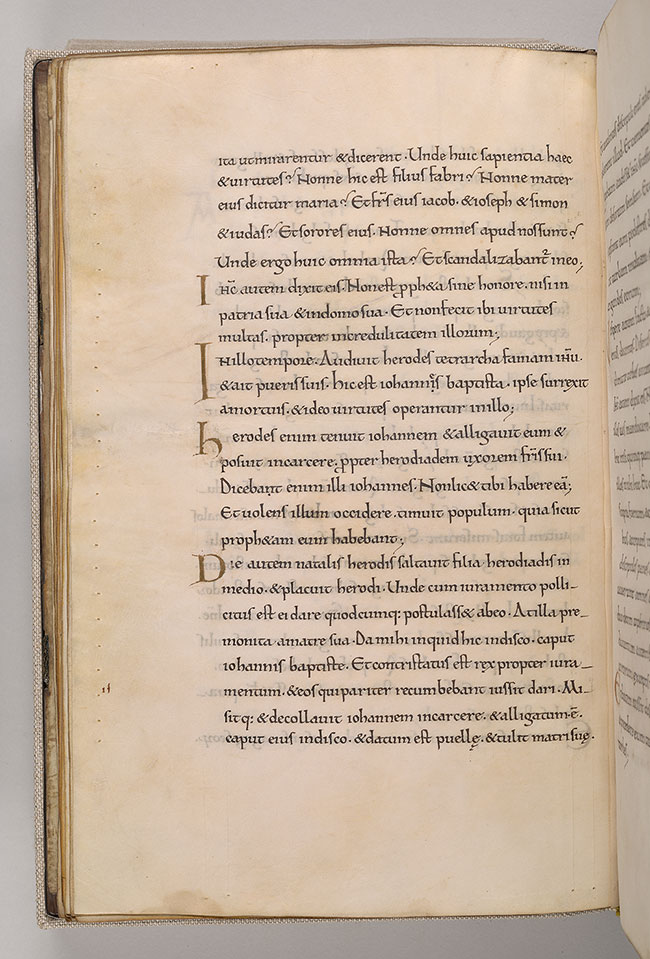 ita utmirarentur &dicerent. Unde huic sapientia haec
&uirtutes? Nonne hic est filius fabri? Nonne mater
eius dicitur maria? Et fr̄s eius iacob. &ioseph & simon
&iudas? Et sorores eius. Nonne omnes apud nos sunt?
Unde ergo huic omnia ista? Et scandalizabant̄ in eo;
Ih̄c autem dixit eis. Non est ꝓph&a sine honore. nisi in
patria sua & indomo sua. Et non fecit ibi uirtutes
multas. propter incredulitatem illorum;
In illo tempore. Audiuit herodes tetrarcha famam ih̄u.
&ait pueris suis. hic est iohannes baptista. ipse surrexit
amortuis. &ideo uirtutes operantur in illo;
herodes enim tenuit iohannem &alligauit eum &
posuit in carcere. ꝓpter herodiadem uxorem fr̄is sui.
Dicebant enim illi iohannes. Non lic& tibi habere eā;
Et uolens illum occidere. timuit populum. quia sicut
proph&am eum habebant;
Die autem natalis herodis saltauit filia herodiadis in
medio. &placuit herodi. Unde cum iuramento polli-
citus est ei dare quodcumq: postulass& abeo. At illa pre-
monita amatre sua. Da mihi inquid hic indisco. caput
iohannis baptiste. Et contristatus est rex propter iura-
mentum. &eos qui pariter recumbebant iussit dari. Mi-
sitq: &decollauit iohannem incarcere. &alligatum ē.
caput eius indisco. &datum est puellę. &tulit matri suę.